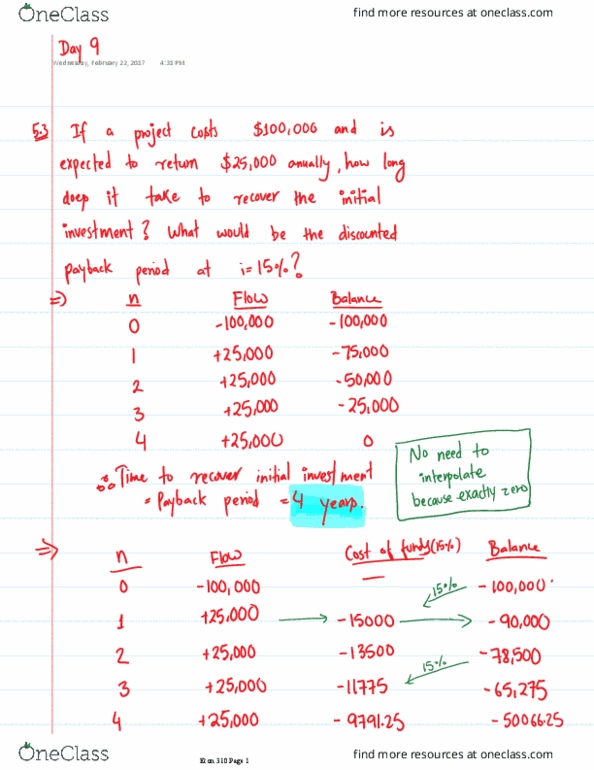 OneClass
find more resources at oneclass.com
Day 9
Wednesday, February 22, 2017 4:33 PM
5.3 If a project costs $100,000 and is
expected to return $25,000 anually, how long
does it take to recover the initial
investment? What would be the discounted
payback period at i=15%?
=> n Flow Balance
0 -100,000 -100,000
1 +25,000 -75,000
2 +25,000 -50,000
3 +25,000 -25,000
4 +25,000 0
∴ Time to recover initial investment
= Payback period = 4 years.
No need to
interpolate
because exactly zero
=> n Flow Cost of funds(15%) Balance
0 -100,000 — 15% -100,000
1 +25,000 -15000 -90,000
2 +25,000 -13500 -78,500
3 +25,000 15% -11775 -65,275
4 +25,000 -9791.25 -50066.25
OneClass
Econ 310 Page 1
find more resources at oneclass.com